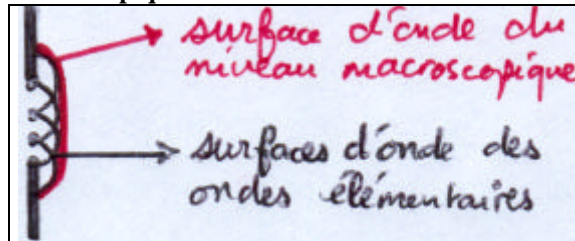 surface d'onde du
niveau macroscopique
surfaces d'onde des
ondes élémentaires